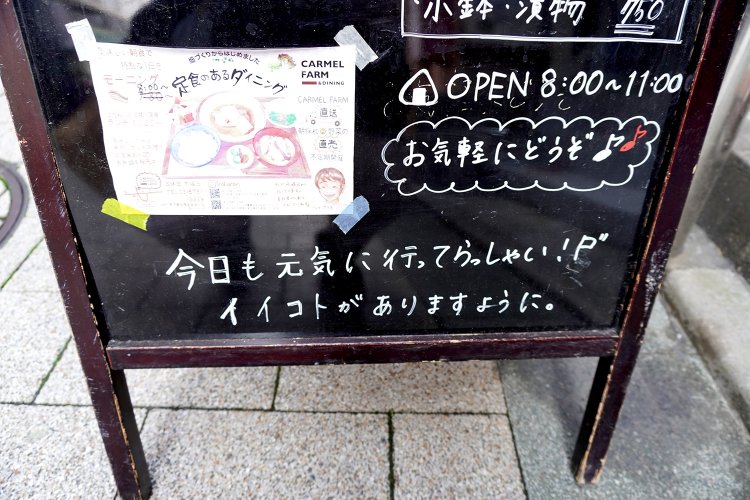 小鉢・漬物 750
OPEN 8:00～11:00
お気軽にどうぞ♪♪
畑づくりからはじめました
モーニング
8:00〜
定食のあるダイニング
CARMEL
FARM
& DINING
CARMEL FARM
直送
野菜の
直売
今日も元気に行ってらっしゃい!
イイコトがありますように。